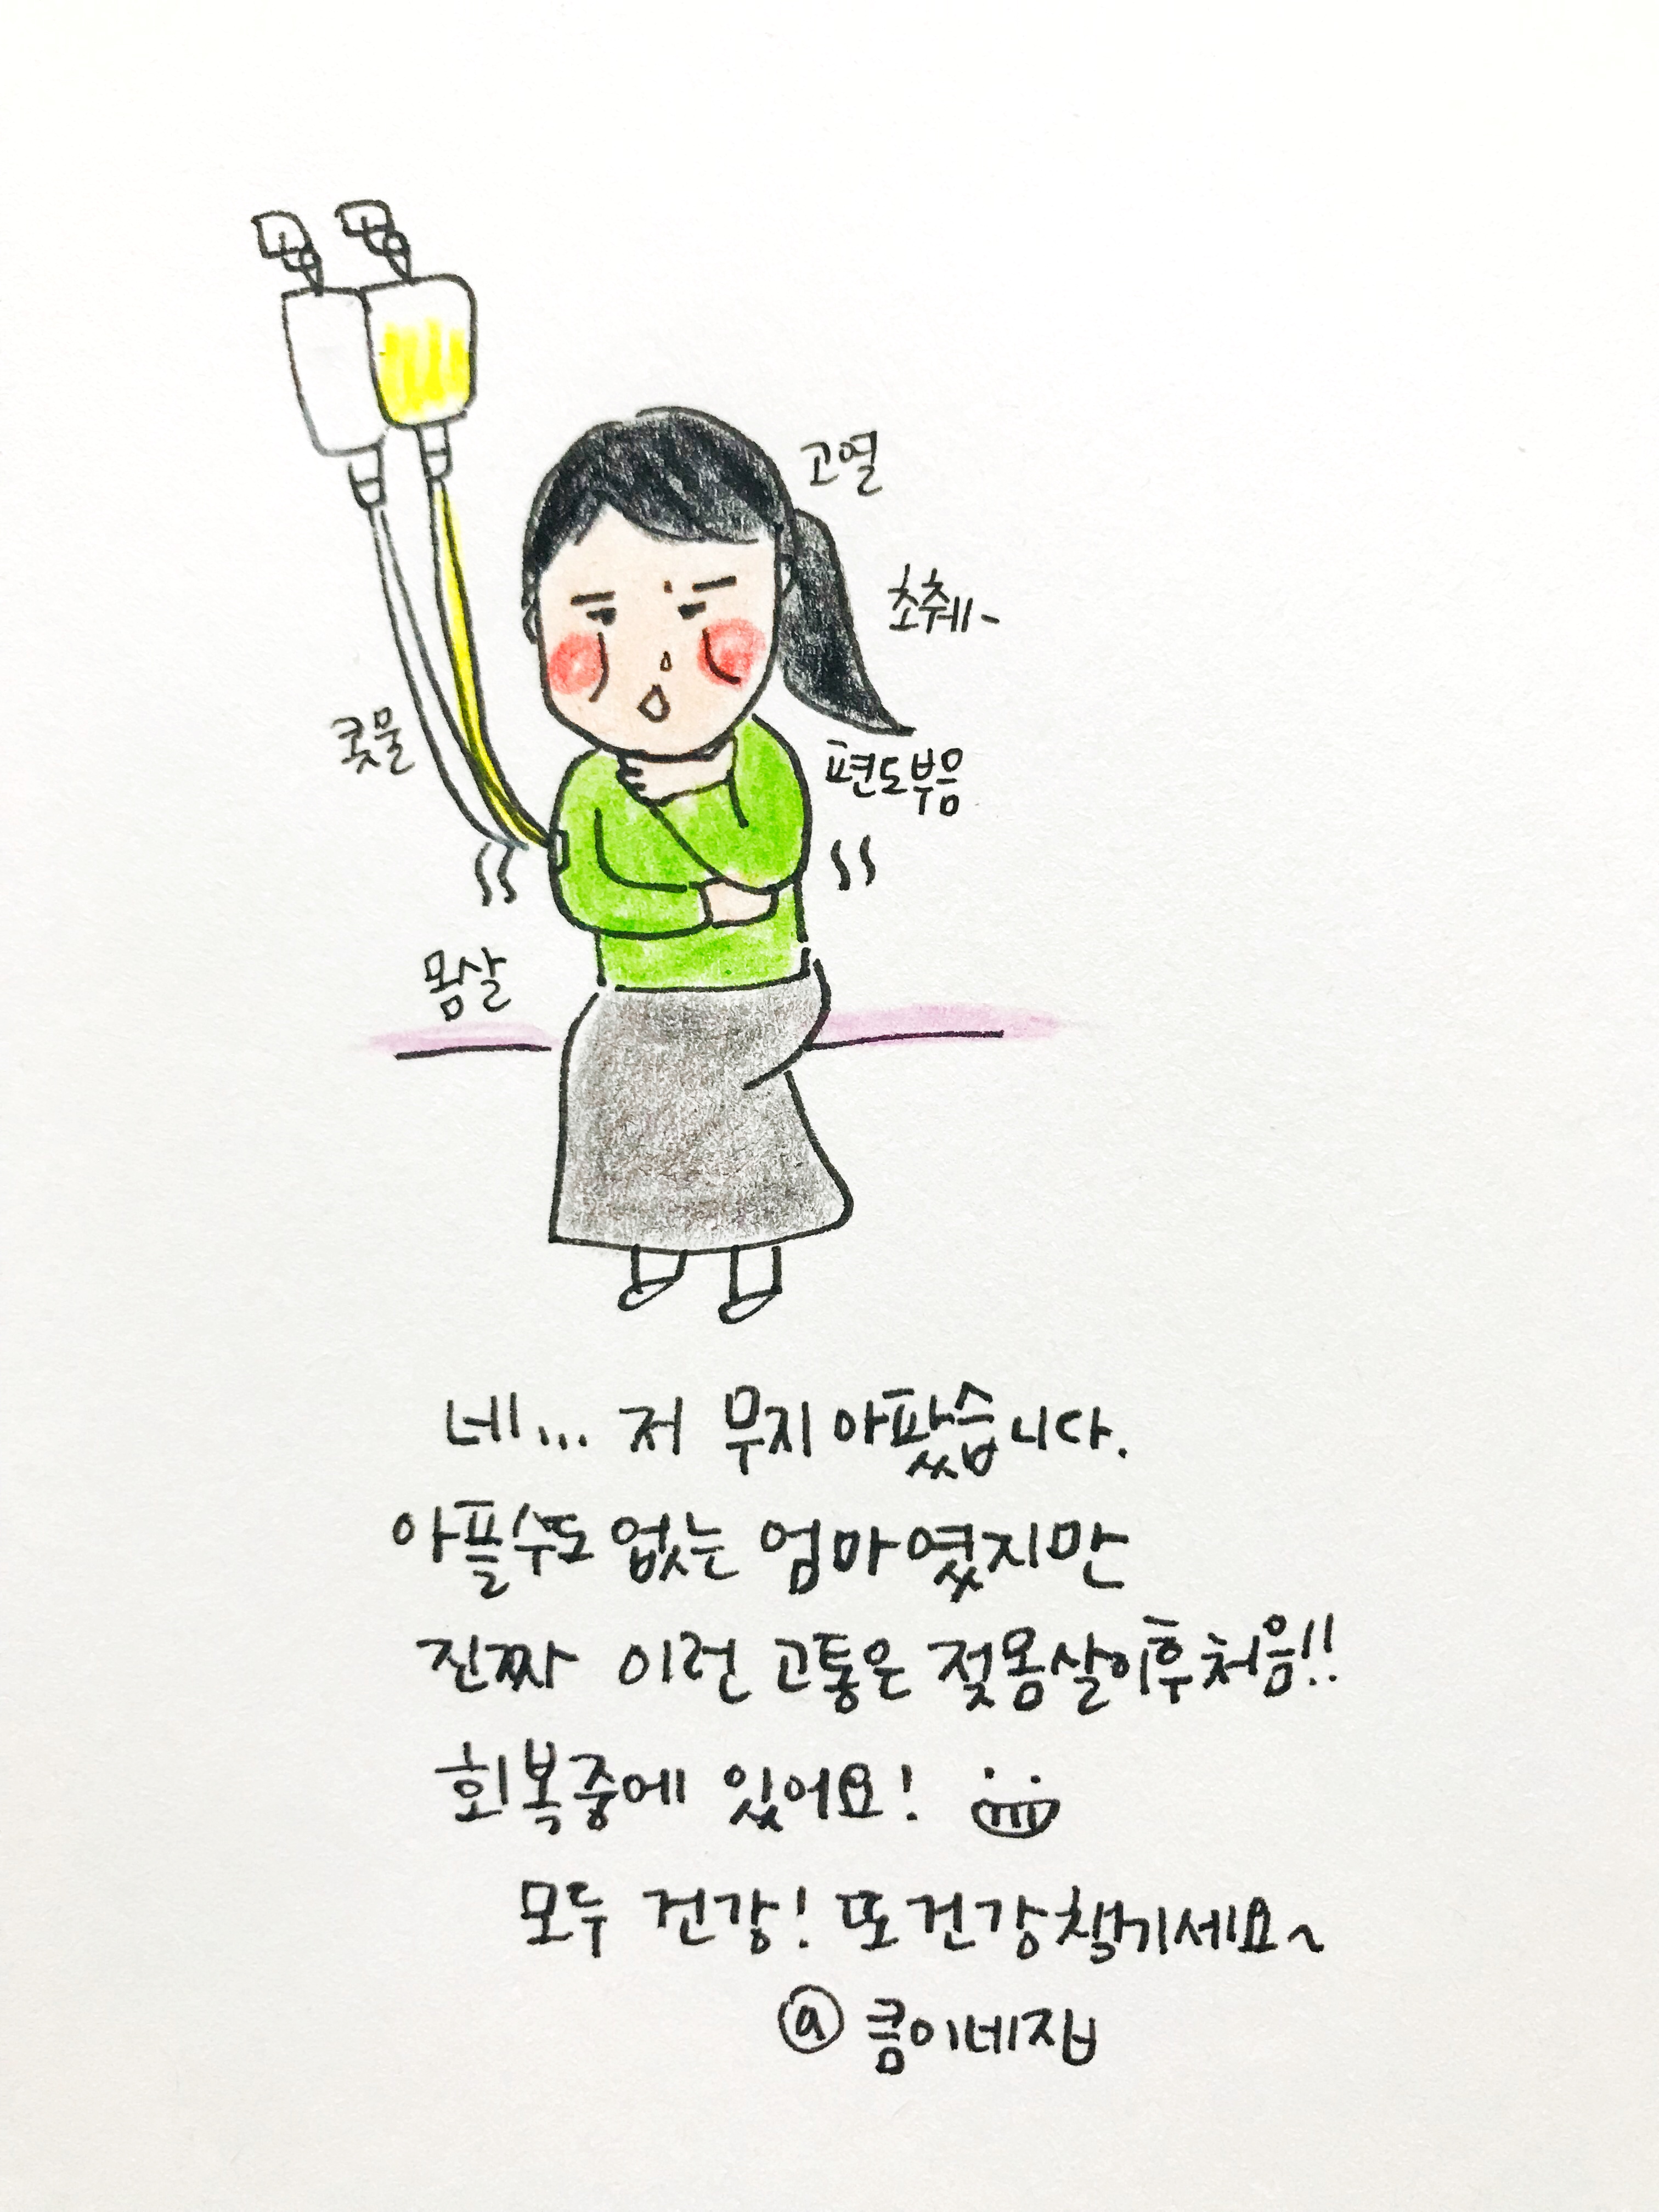 고열
초췌~
콧물
편도부음
몸살
네... 저 무지 아팠습니다.
아플수도 없는 엄마였지만
진짜 이런 고통은 젖몸살이후처음!!
회복중에 있어요!
모두 건강! 또건강챙기세요~
@콤이네집